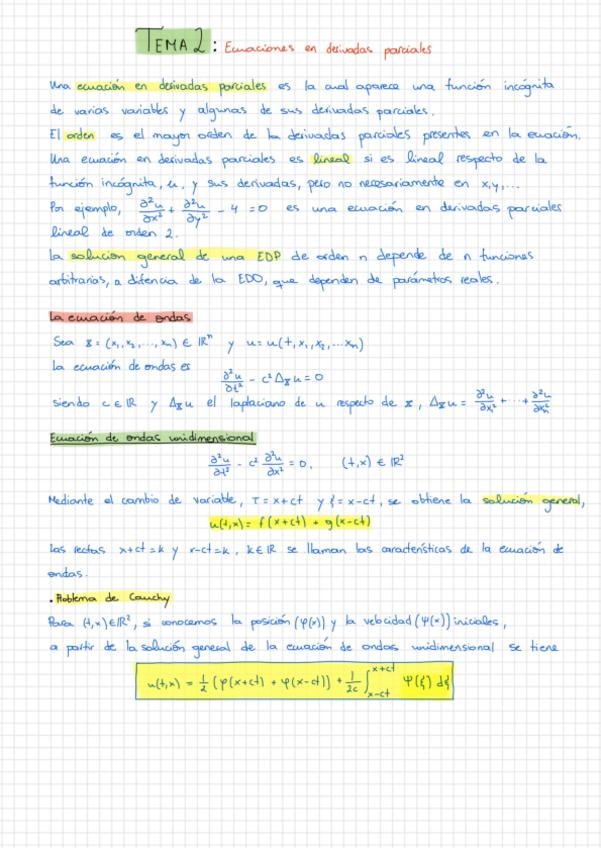 TEMA 2: Ecuaciones en derivadas parciales
Una ecuación en derivadas parciales es la cual aparece una función incógnita
de varias variables y algunas de sus derivadas parciales.
El orden es el mayor orden de las derivadas parciales presentes en la ecuación.
Una ecuación en derivadas parciales es lineal si es lineal respecto de la
función incógnita, u, y sus derivadas, pero no necesariamente en x,y,...
Por ejemplo, ∂²u/∂x² + ∂²u/∂y² - 4 = 0 es una ecuación en derivadas parciales
lineal de orden 2.
La solución general de una EDP de orden n depende de n funciones
arbitrarias, a difencia de la EDO, que dependen de parámetros reales.
La ecuación de ondas
Sea x = (x₁, x₂, ..., xₙ) ∈ ℝⁿ y u = u(t, x₁, x₂, ... xₙ)
la ecuación de ondas es
∂²u/∂t² - c² Δₓu = 0
siendo c ∈ ℝ y Δₓu el laplaciano de u respecto de x, Δₓu = ∂²u/∂x₁² + ... + ∂²u/∂xₙ²
Ecuación de ondas unidimensional
∂²u/∂t² - c² ∂²u/∂x² = 0, (t,x) ∈ ℝ²
Mediante el cambio de variable, τ = x+ct y ξ = x-ct, se obtiene la solución general,
u(t,x) = f(x+ct) + g(x-ct)
Las rectas x+ct=k y x-ct=k, k∈ℝ se llaman las características de la ecuación de
ondas.
. Problema de Cauchy
Para (t,x)∈ℝ², si conocemos la posición (φ(x)) y la velocidad (ψ(x)) iniciales,
a partir de la solución general de la ecuación de ondas unidimensional se tiene
u(t,x) = 1/2 (φ(x+ct) + φ(x-ct)) + 1/2c ∫ₓ₋ct^x+ct ψ(ξ) dξ